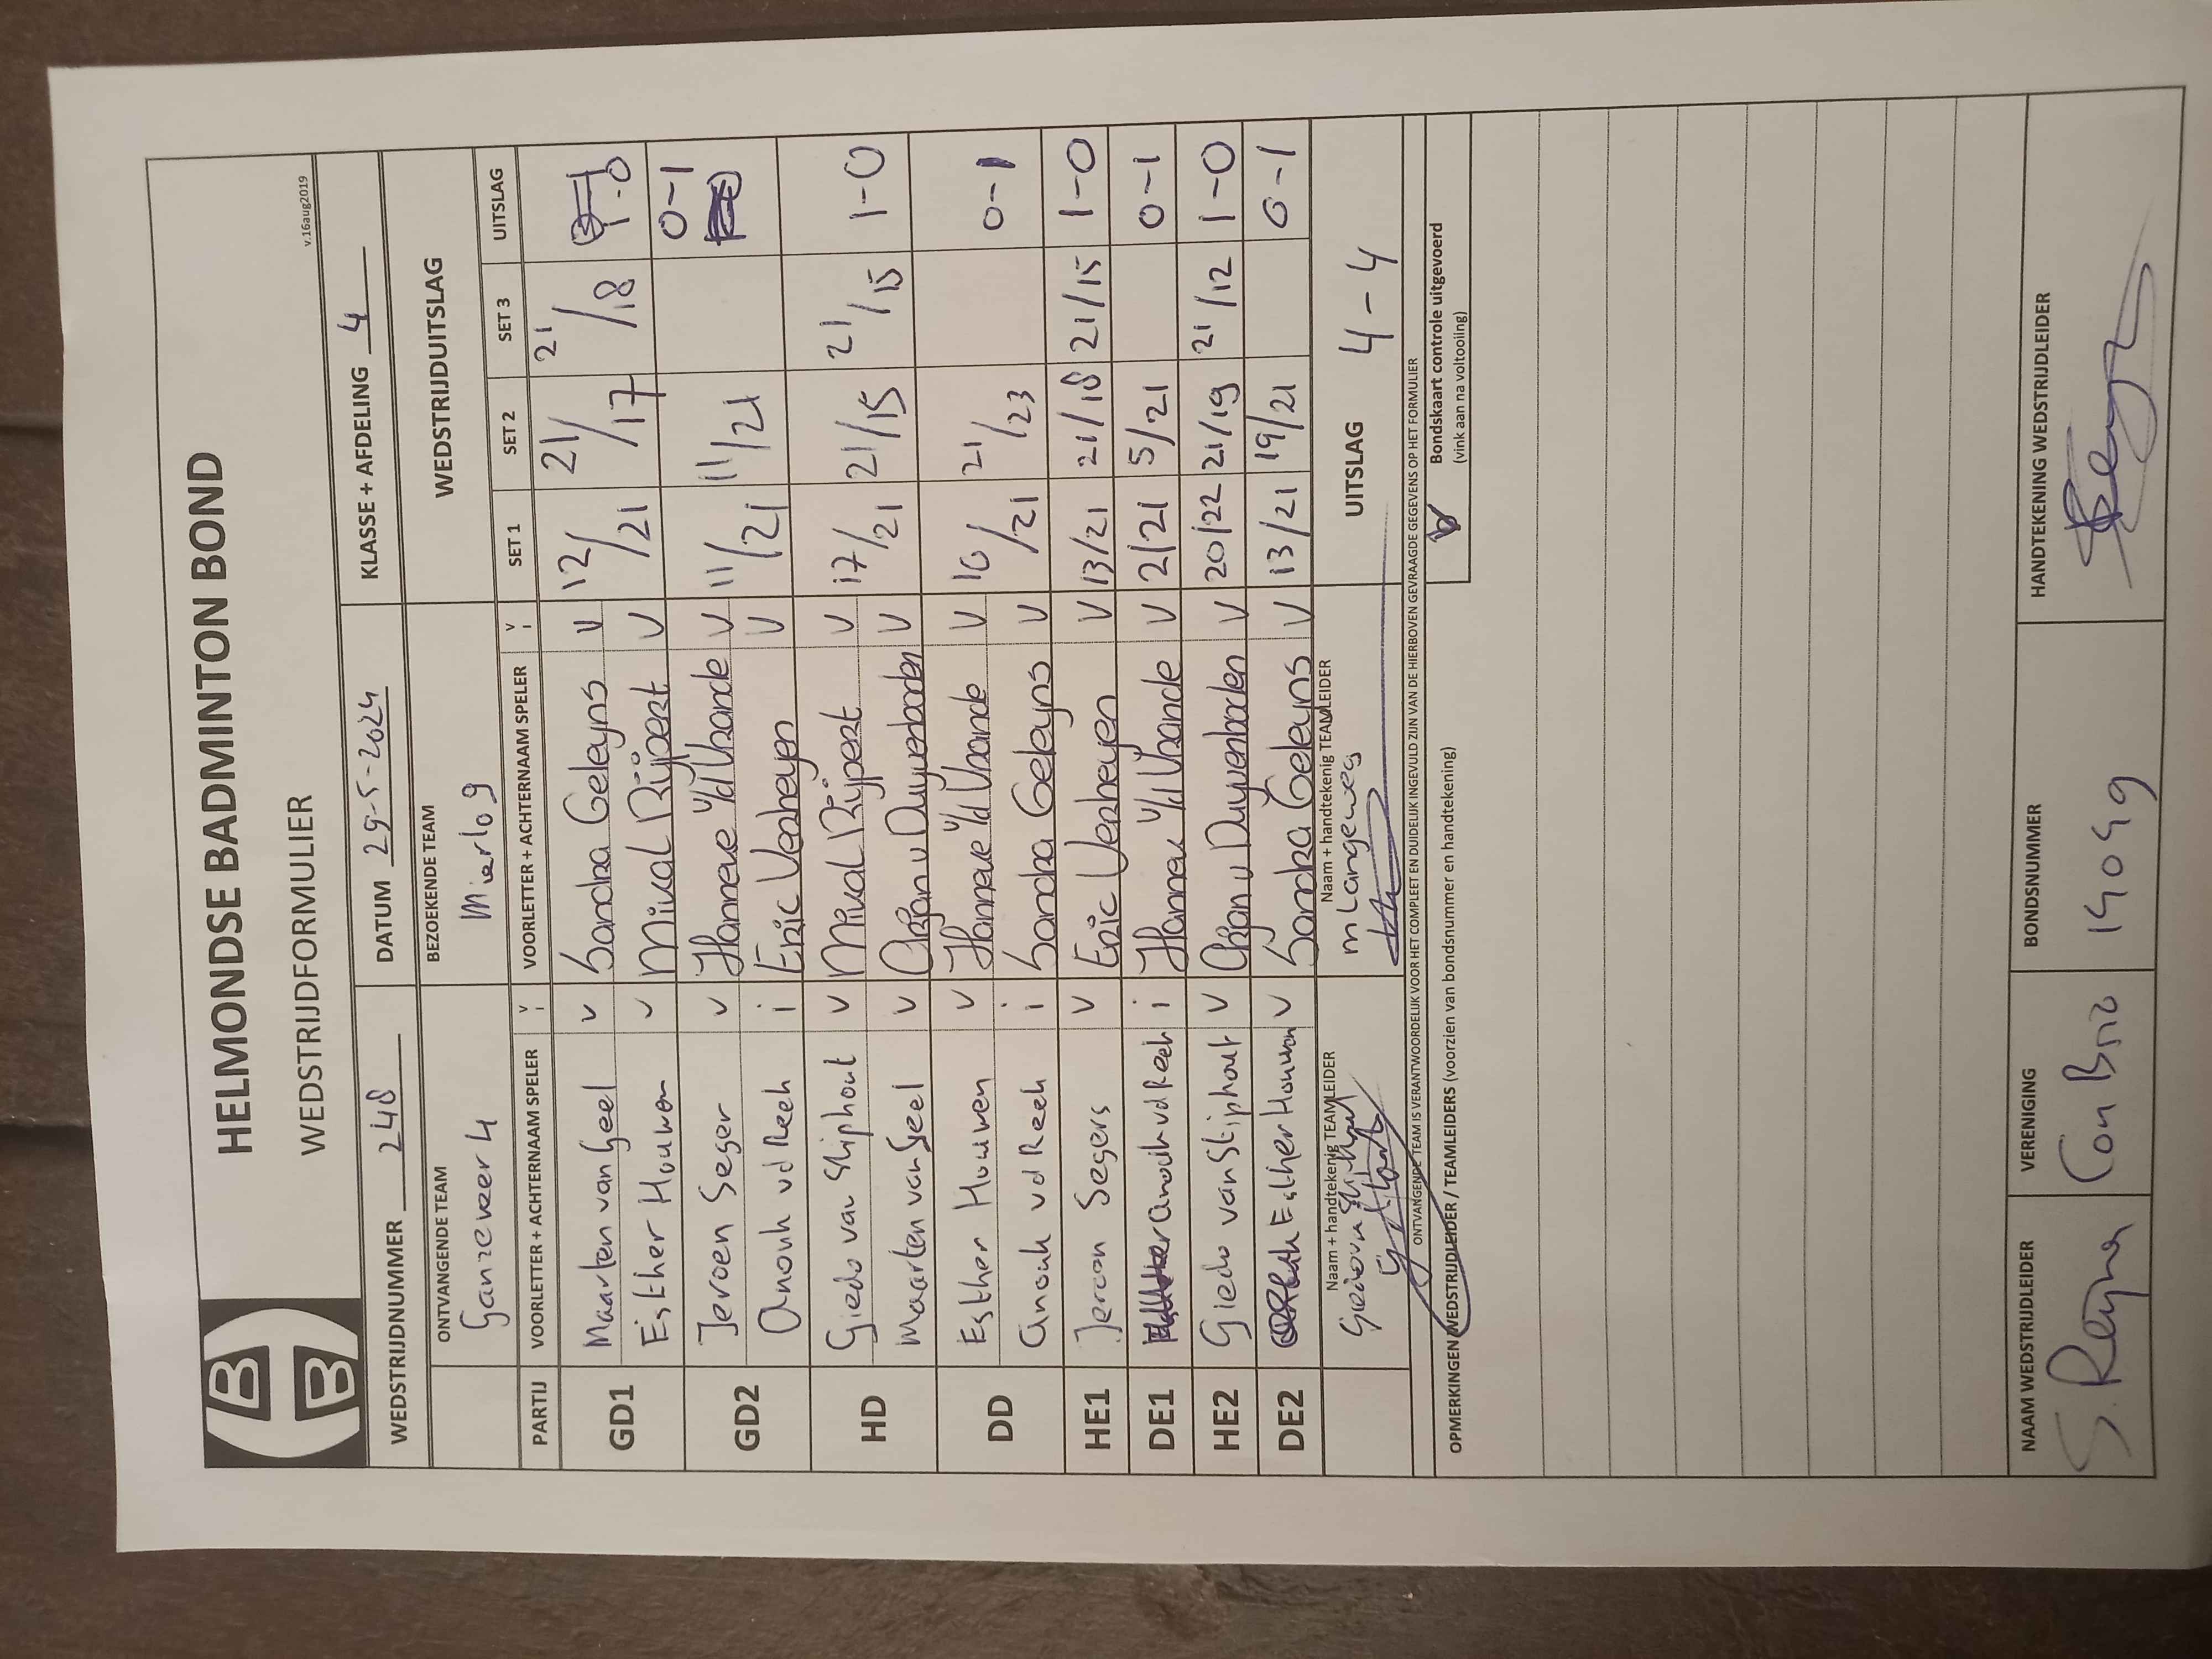 HELMONDSE BADMINTON BOND
WEDSTRIJDFORMULIER
v.16aug2019
HBB
WEDSTRIJDNUMMER 248 DATUM 29-5-2024 KLASSE + AFDELING 4
ONTVANGENDE TEAM BEZOEKENDE TEAM WEDSTRIJDUITSLAG
Ganzeveer 4 Mierlo 9
PARTIJ VOORLETTER + ACHTERNAAM SPELER V I VOORLETTER + ACHTERNAAM SPELER V I SET 1 SET 2 SET 3 UITSLAG
GD1 Maarten van Geel v Sandra Geleyns v 12/21 21/17 21/18 1-0
Esther Houwen v Mirval Rijpert v
GD2 Jeroen Seger v Hanneke v/d Vrande v 11/21 11/21 0-1
Anouk vd Reek i Eric Verheyen v
HD Giedo van Stiphout v Mirval Rijpert v 17/21 21/15 21/15 1-0
Maarten van Geel v Arjan v Duyvenboden v
DD Esther Houwen v Hanneke v/d Vrande v 10/21 21/23 0-1
Anouk vd Reek i Sandra Geleyns v
HE1 Jeroen Segers v Eric Verheyen v 13/21 21/18 21/15 1-0
DE1 Anouk vd Reek i Hanneke v/d Vrande v 2/21 5/21 0-1
HE2 Giedo van Stiphout v Arjan v Duyvenboden v 20/22 21/19 21/12 1-0
DE2 Esther Houwen v Sandra Geleyns v 13/21 19/21 0-1
Naam + handtekenig TEAMLEIDER Naam + handtekenig TEAMLEIDER UITSLAG 4-4
Giedo van Stiphout M Langeweg
ONTVANGENDE TEAM IS VERANTWOORDELIJK VOOR HET COMPLEET EN DUIDELIJK INGEVULD ZIJN VAN DE HIERBOVEN GEVRAAGDE GEGEVENS OP HET FORMULIER
OPMERKINGEN WEDSTRIJDLEIDER / TEAMLEIDERS (voorzien van bondsnummer en handtekening)
Bondskaart controle uitgevoerd
(vink aan na voltooiing)
NAAM WEDSTRIJDLEIDER VERENIGING BONDSNUMMER HANDTEKENING WEDSTRIJDLEIDER
S. Reyna Con Brio 14049